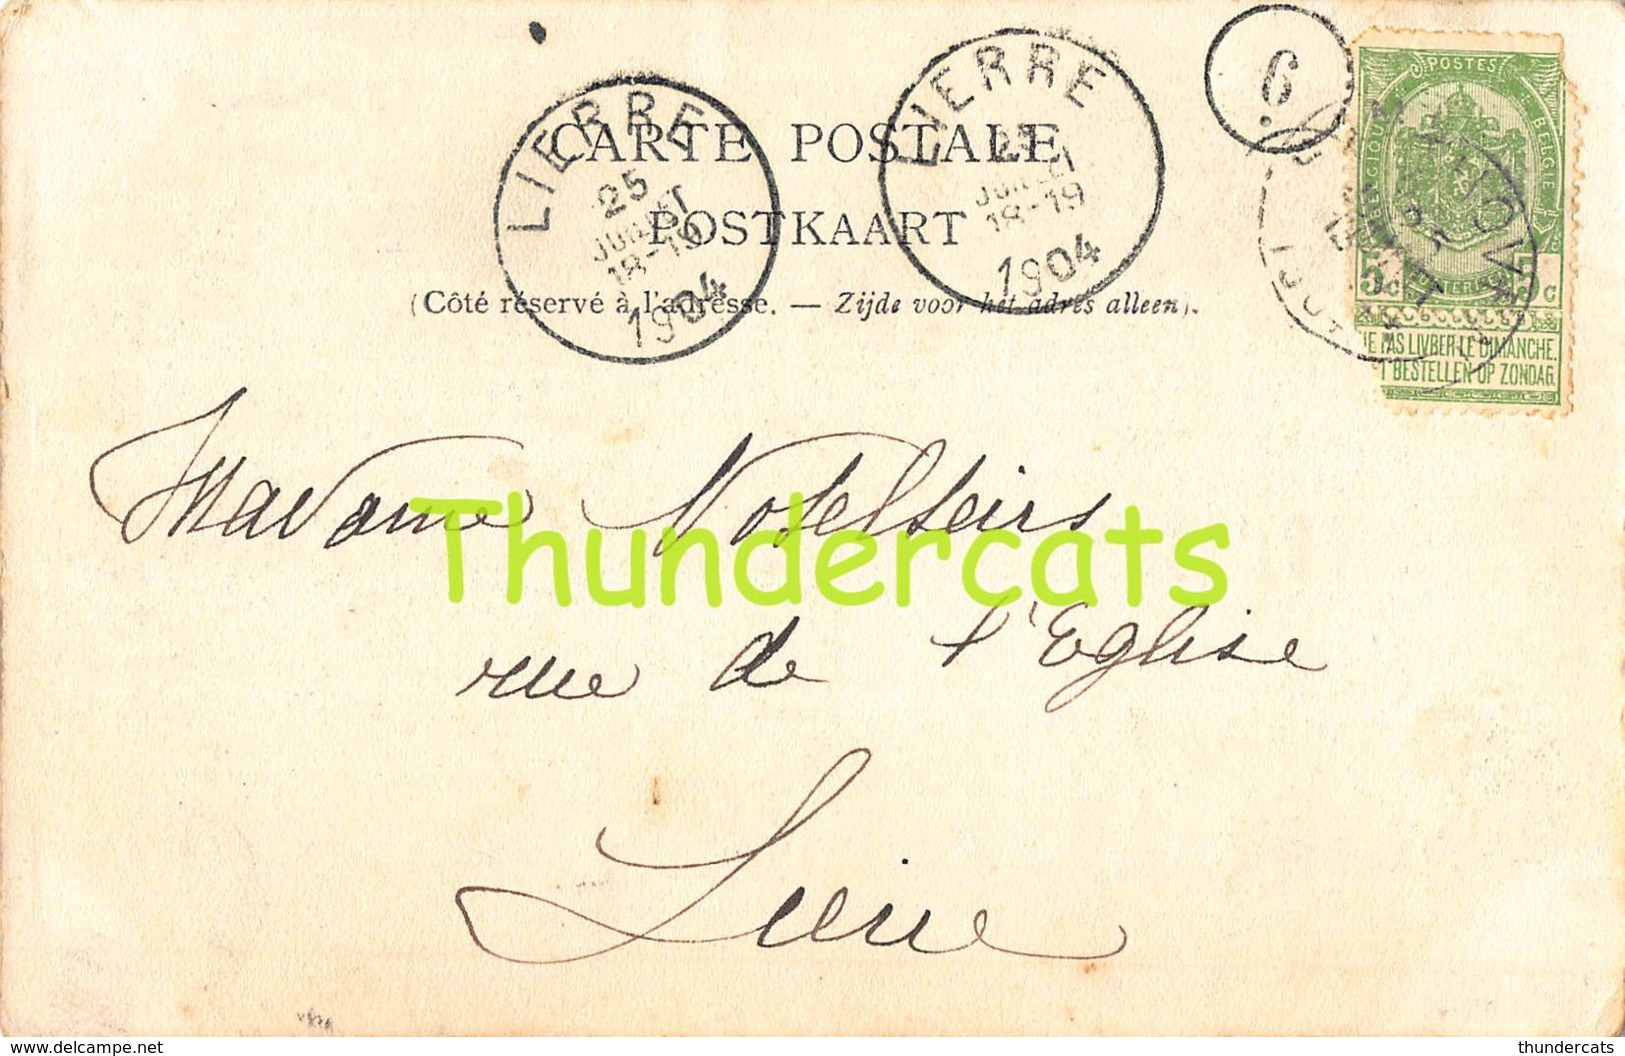 LIERRE
25
JUILLET
18-19
1904
LIERRE
25
JUILLET
18-19
1904
6
CARTE POSTALE
POSTKAART
(Côté réservé à l'adresse. — Zijde voor het adres alleen).
POSTES
BELGIQUE
BELGIE
5c
NE PAS LIVRER LE DIMANCHE.
NIET BESTELLEN OP ZONDAG.
Madame
rue de l'Eglise
Lierre
Thundercats
delcampe.net
thundercats